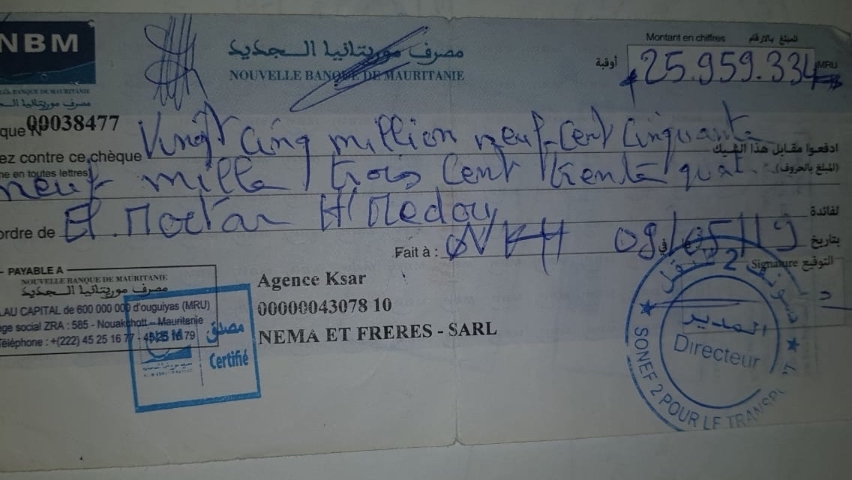 NBM
مصرف موريتانيا الـجديد
NOUVELLE BANQUE DE MAURITANIE
Montant en chiffres المبلغ بالأرقام
أوقية 25.959.334 MRU
que N° 00038477
Vingt Cinq million neuf-Cent Cinquante
ez contre ce chèque ادفعوا مقابل هذا الشيك
me en toutes lettres (المبلغ بالحروف)
neuf mille trois Cent trente quat
ordre de El.Moctar لفائدة
Fait à : NKTT في 09/05/19 بتاريخ
PAYABLE A
NOUVELLE BANQUE DE MAURITANIE
مصرف موريتانيا الـجديد
AU CAPITAL de 600 000 000 d'ouguiyas (MRU)
ge social ZRA : 585 - Nouakchott – Mauritanie
Téléphone : +(222) 45 25 16 77 - 45 25 16 79
Agence Ksar
00000043078 10
NEMA ET FRERES - SARL
مصدق
Certifié
Signature التوقيع
المدير
Directeur
SONEF 2 POUR LE TRANSP